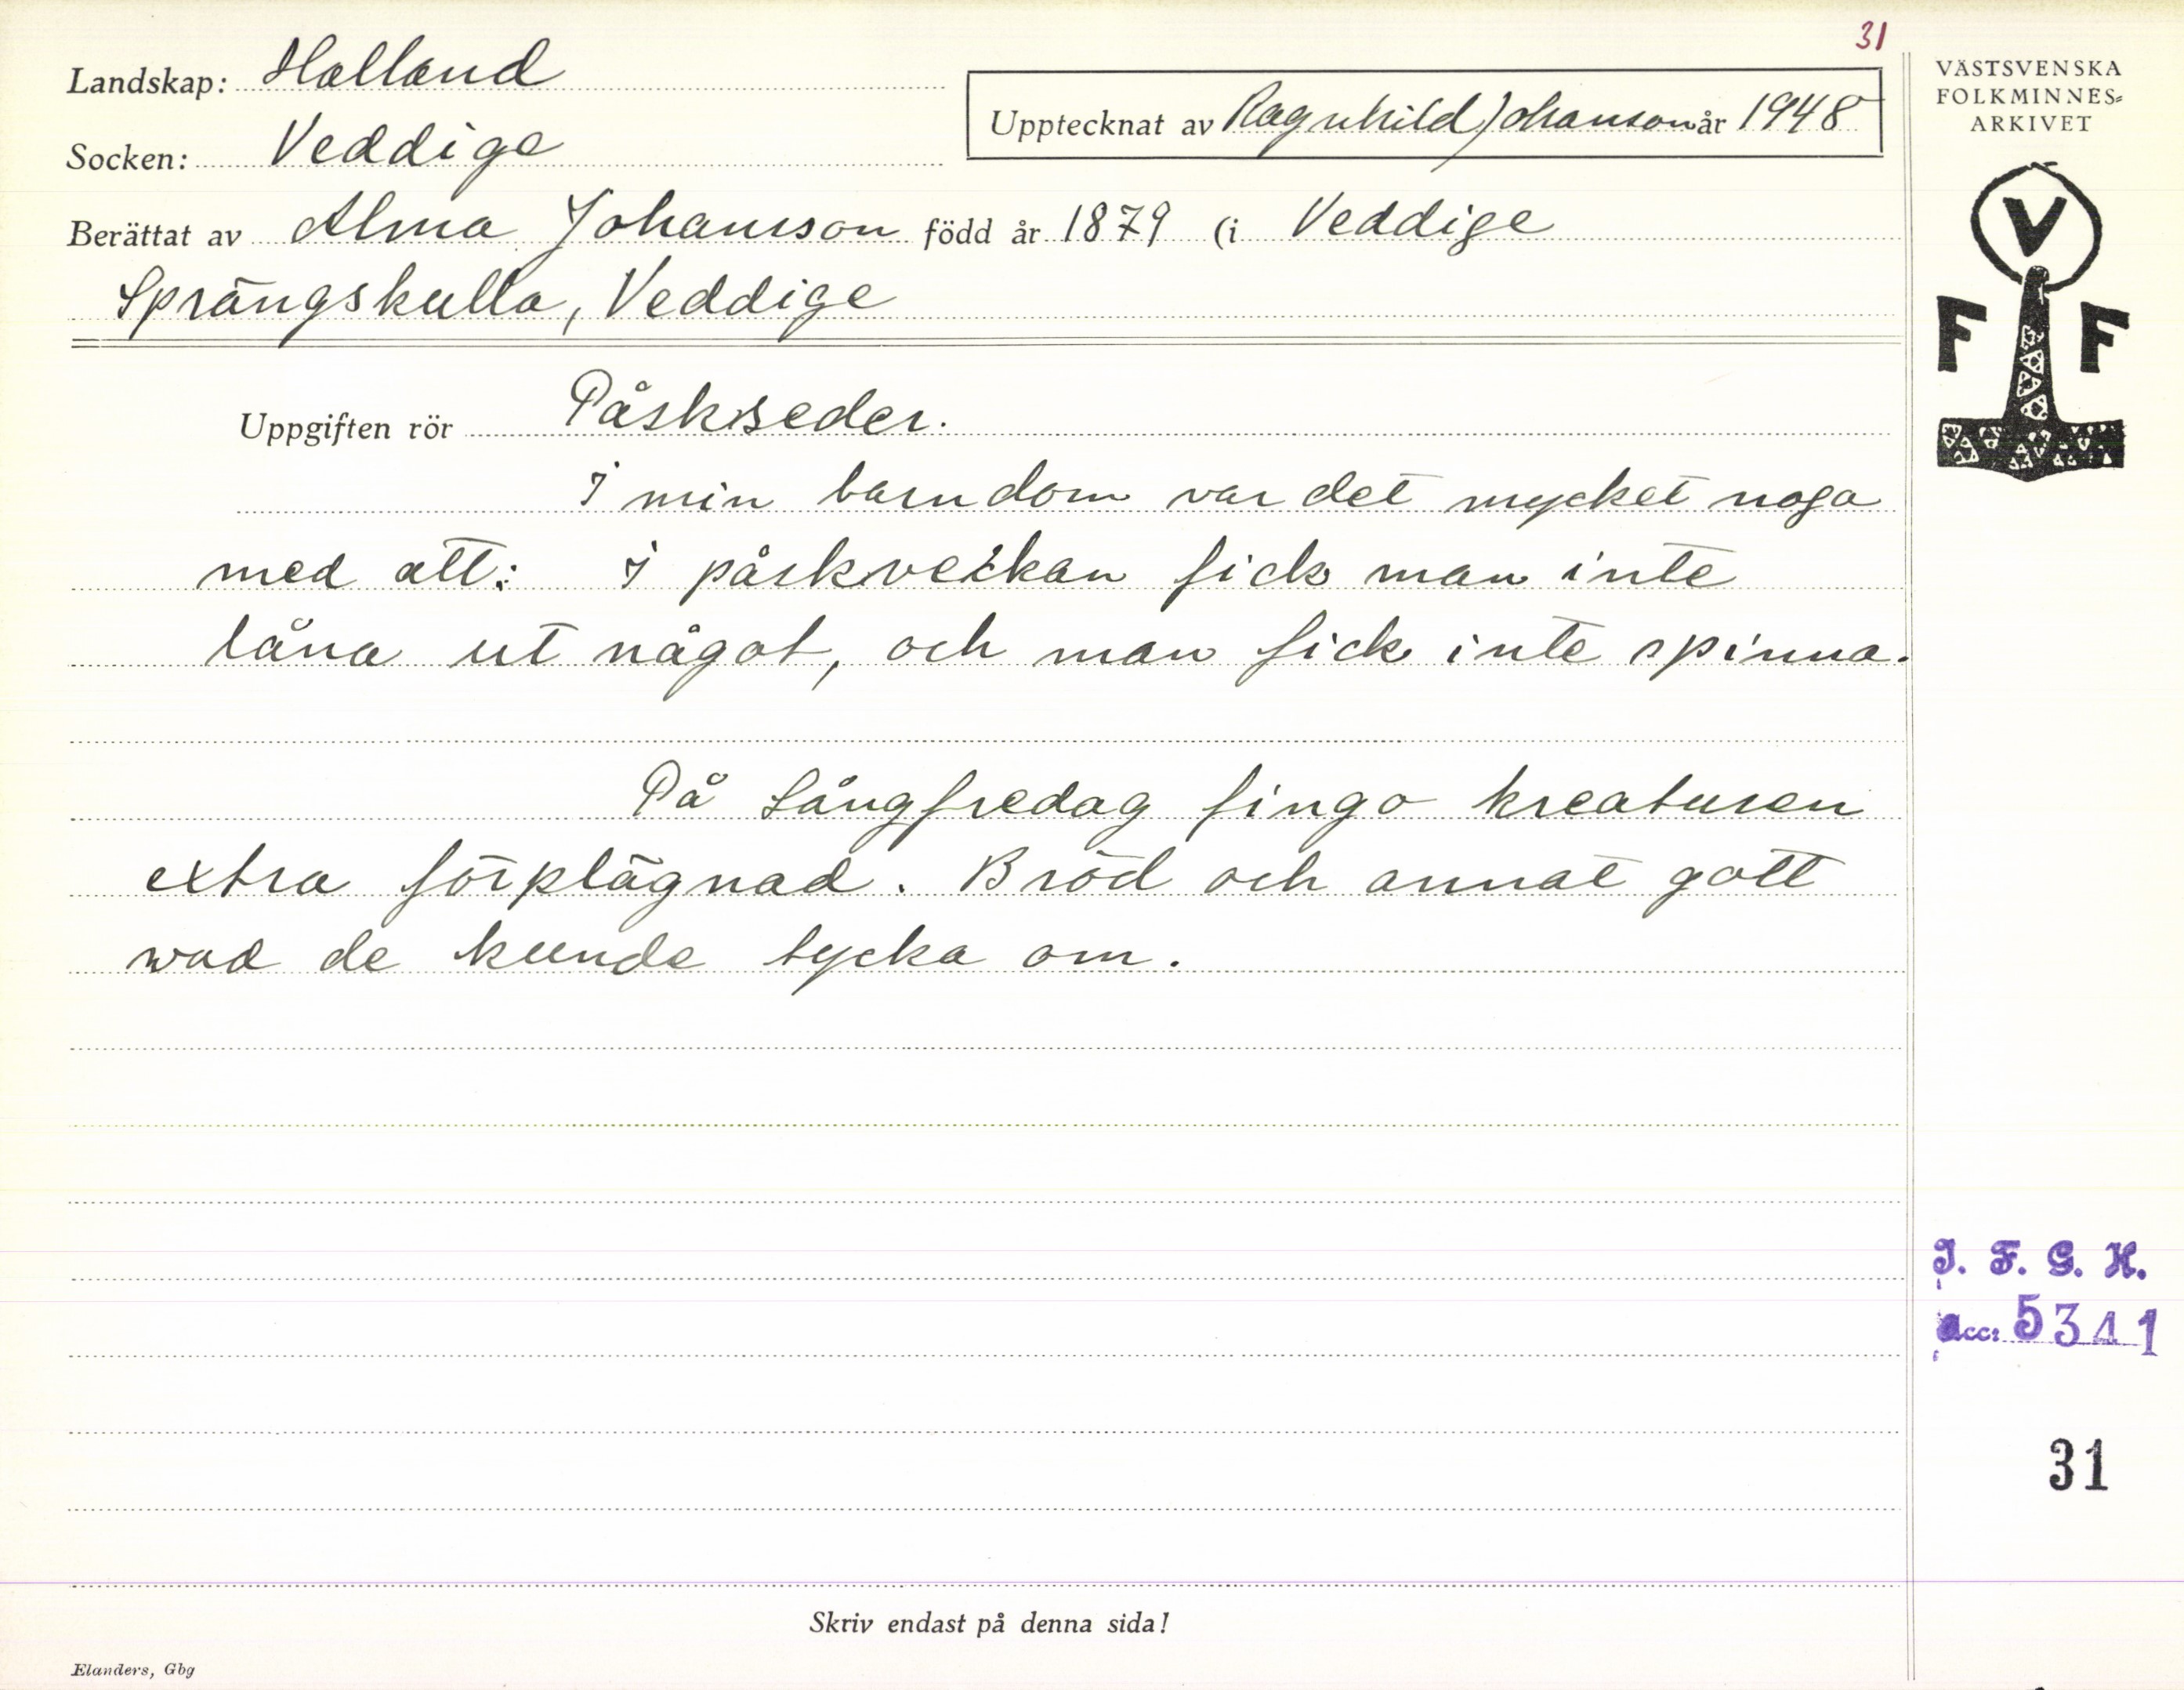 31
Landskap: Halland
Upptecknat av Ragnhild Johanson år 1948
Socken: Veddige
Berättat av Alma Johanson född år 1879 (i Veddige
Sprängskulla, Veddige
Uppgiften rör Påskseder.
I min barndom var det mycket noga
med att: I påskveckan fick man inte
låna ut något, och man fick inte spinna.
På Långfredag fingo kreaturen
extra förplägnad. Bröd och annat gott
wad de kunde tycka om.
Skriv endast på denna sida!
Elanders, Gbg
VÄSTSVENSKA
FOLKMINNES=
ARKIVET
V
F F
I. F. G. H.
acc: 5341
31